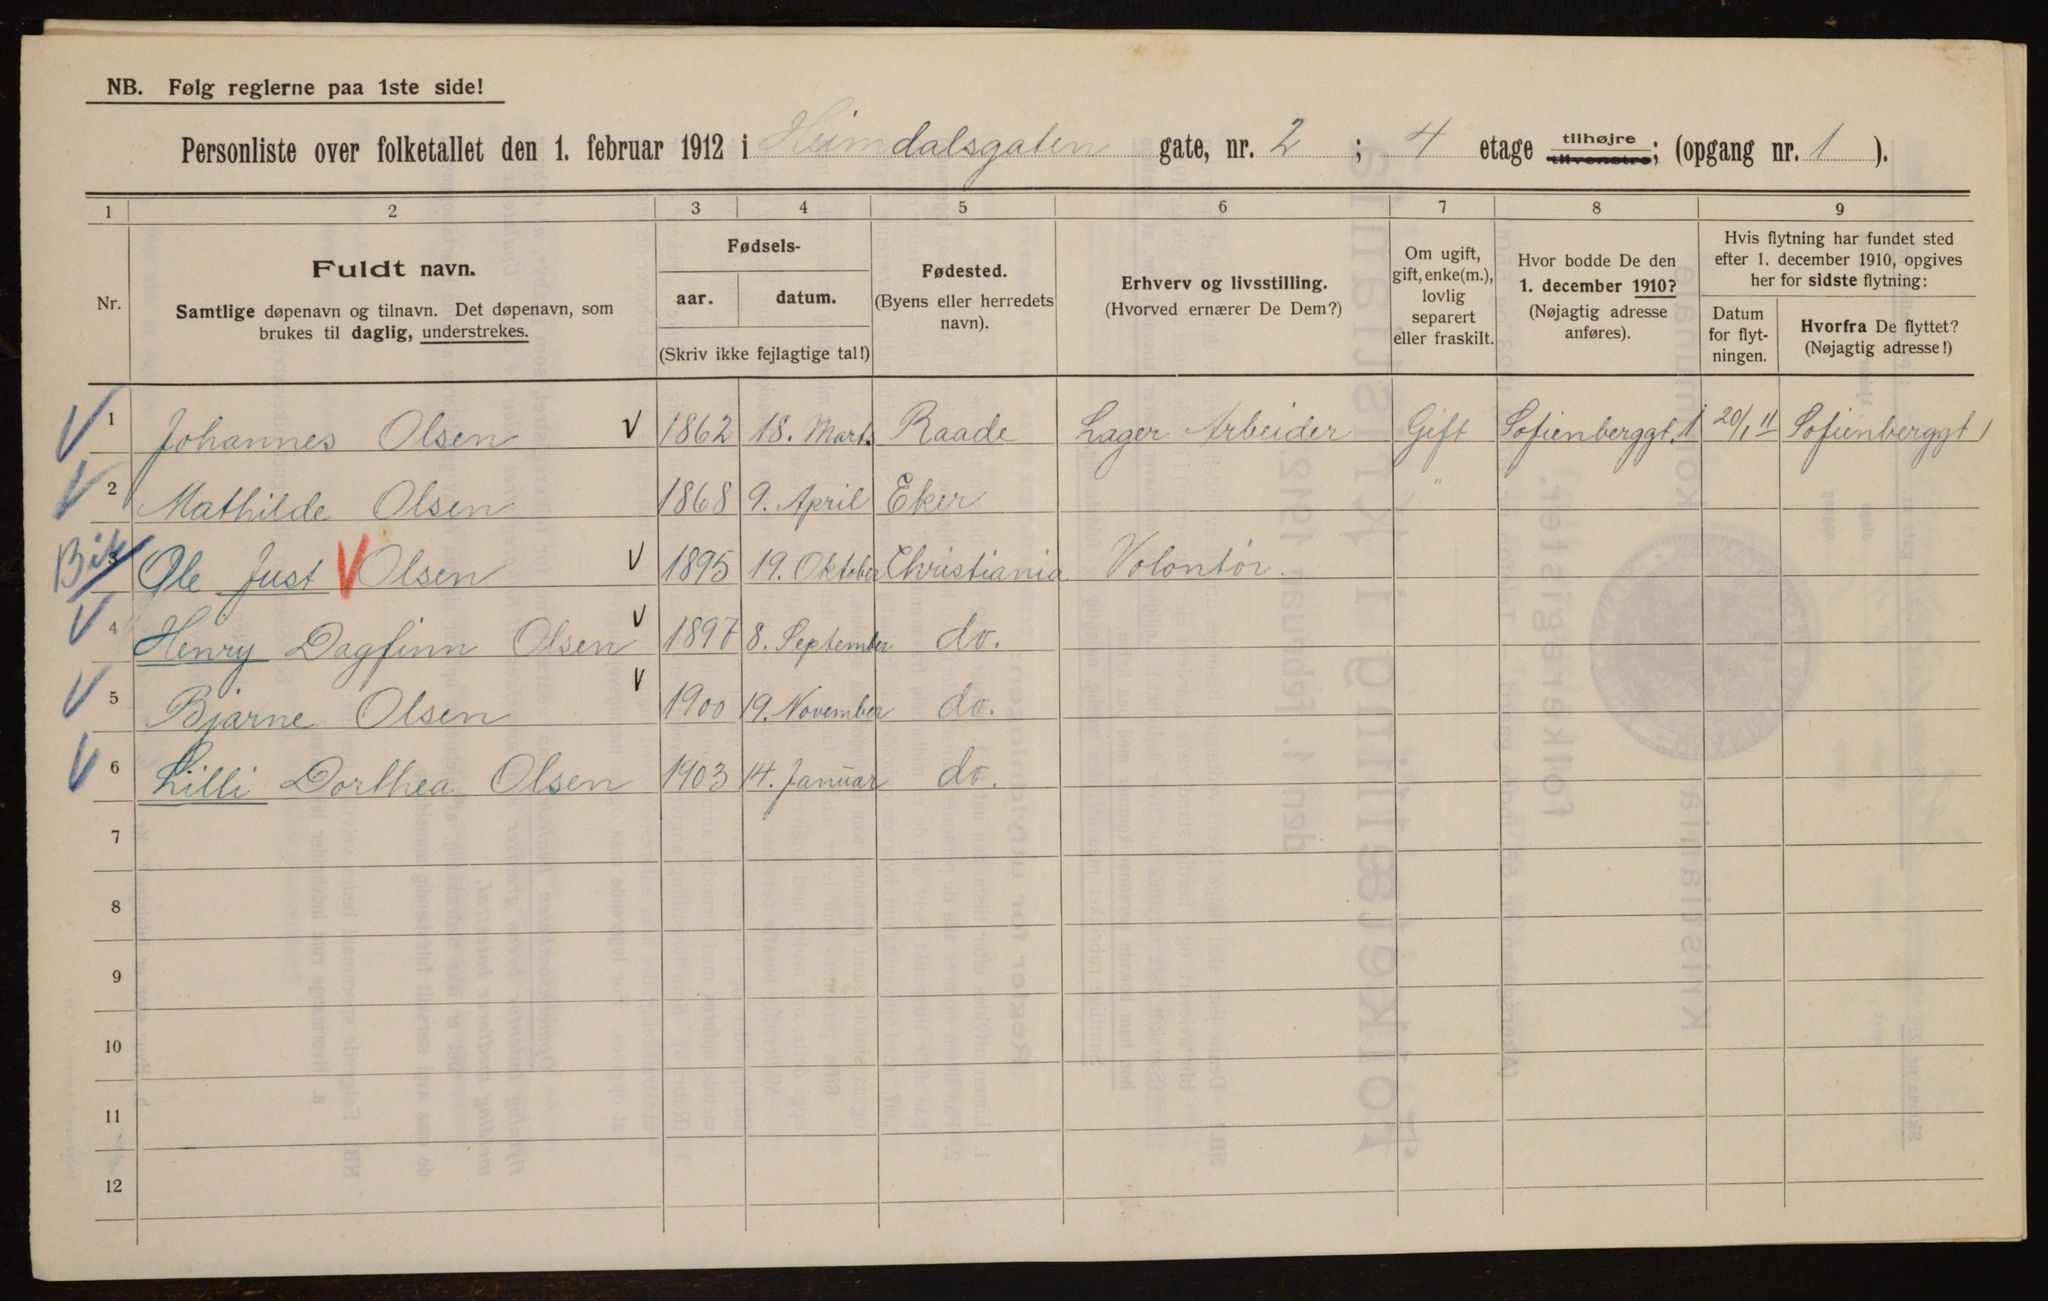 NB. Følg reglerne paa 1ste side!
Personliste over folketallet den 1. februar 1912 i Heimdalsgaten gate, nr. 2 ; 4 etage tilhøjre tilvenstre; (opgang nr. 1 ).
1 2 3 4 5 6 7 8 9
Nr.
Fuldt navn.
Samtlige døpenavn og tilnavn. Det døpenavn, som
brukes til daglig, understrekes.
Fødsels-
aar. datum.
(Skriv ikke fejlagtige tal!)
Fødested.
(Byens eller herredets
navn).
Erhverv og livsstilling.
(Hvorved ernærer De Dem?)
Om ugift,
gift, enke(m.),
lovlig
separert
eller fraskilt.
Hvor bodde De den
1. december 1910?
(Nøjagtig adresse
anføres).
Hvis flytning har fundet sted
efter 1. december 1910, opgives
her for sidste flytning:
Datum
for flyt-
ningen.
Hvorfra De flyttet?
(Nøjagtig adresse!)
1 Johannes Olsen 1862 18. Marts Raade Lager Arbeider Gift Sofienberggt. 1 20/1 11 Sofienberggt 1
2 Mathilde Olsen 1868 9. April Eker "
3 Ole Just Olsen 1895 19. Oktober Christiania Volontør
4 Henry Dagfinn Olsen 1897 8. September do.
5 Bjarne Olsen 1900 19. November do.
6 Lilli Dorthea Olsen 1903 14. Januar do.
7
8
9
10
11
12